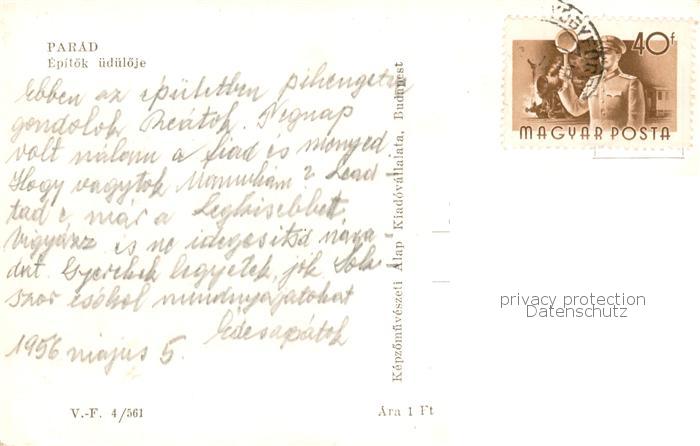 PARÁD
Építők üdülője
Ebben az épületben pihengetve
gondolok Reátok. Tegnap
volt nálam a fiad és menyed.
Hogy vagytok Mamikám? Lead-
tad e már a Legkisebbet,
Vigyázz és ne idegesítsd maga-
dat. Gyerekek legyetek jók Sok-
szor csókol mindnyájatokat
Édesapátok
1956 május 5.
V.-F. 4/561
Ára 1 Ft
Képzőművészeti Alap Kiadóvállalata, Budapest
40f
MAGYAR POSTA
privacy protection
Datenschutz